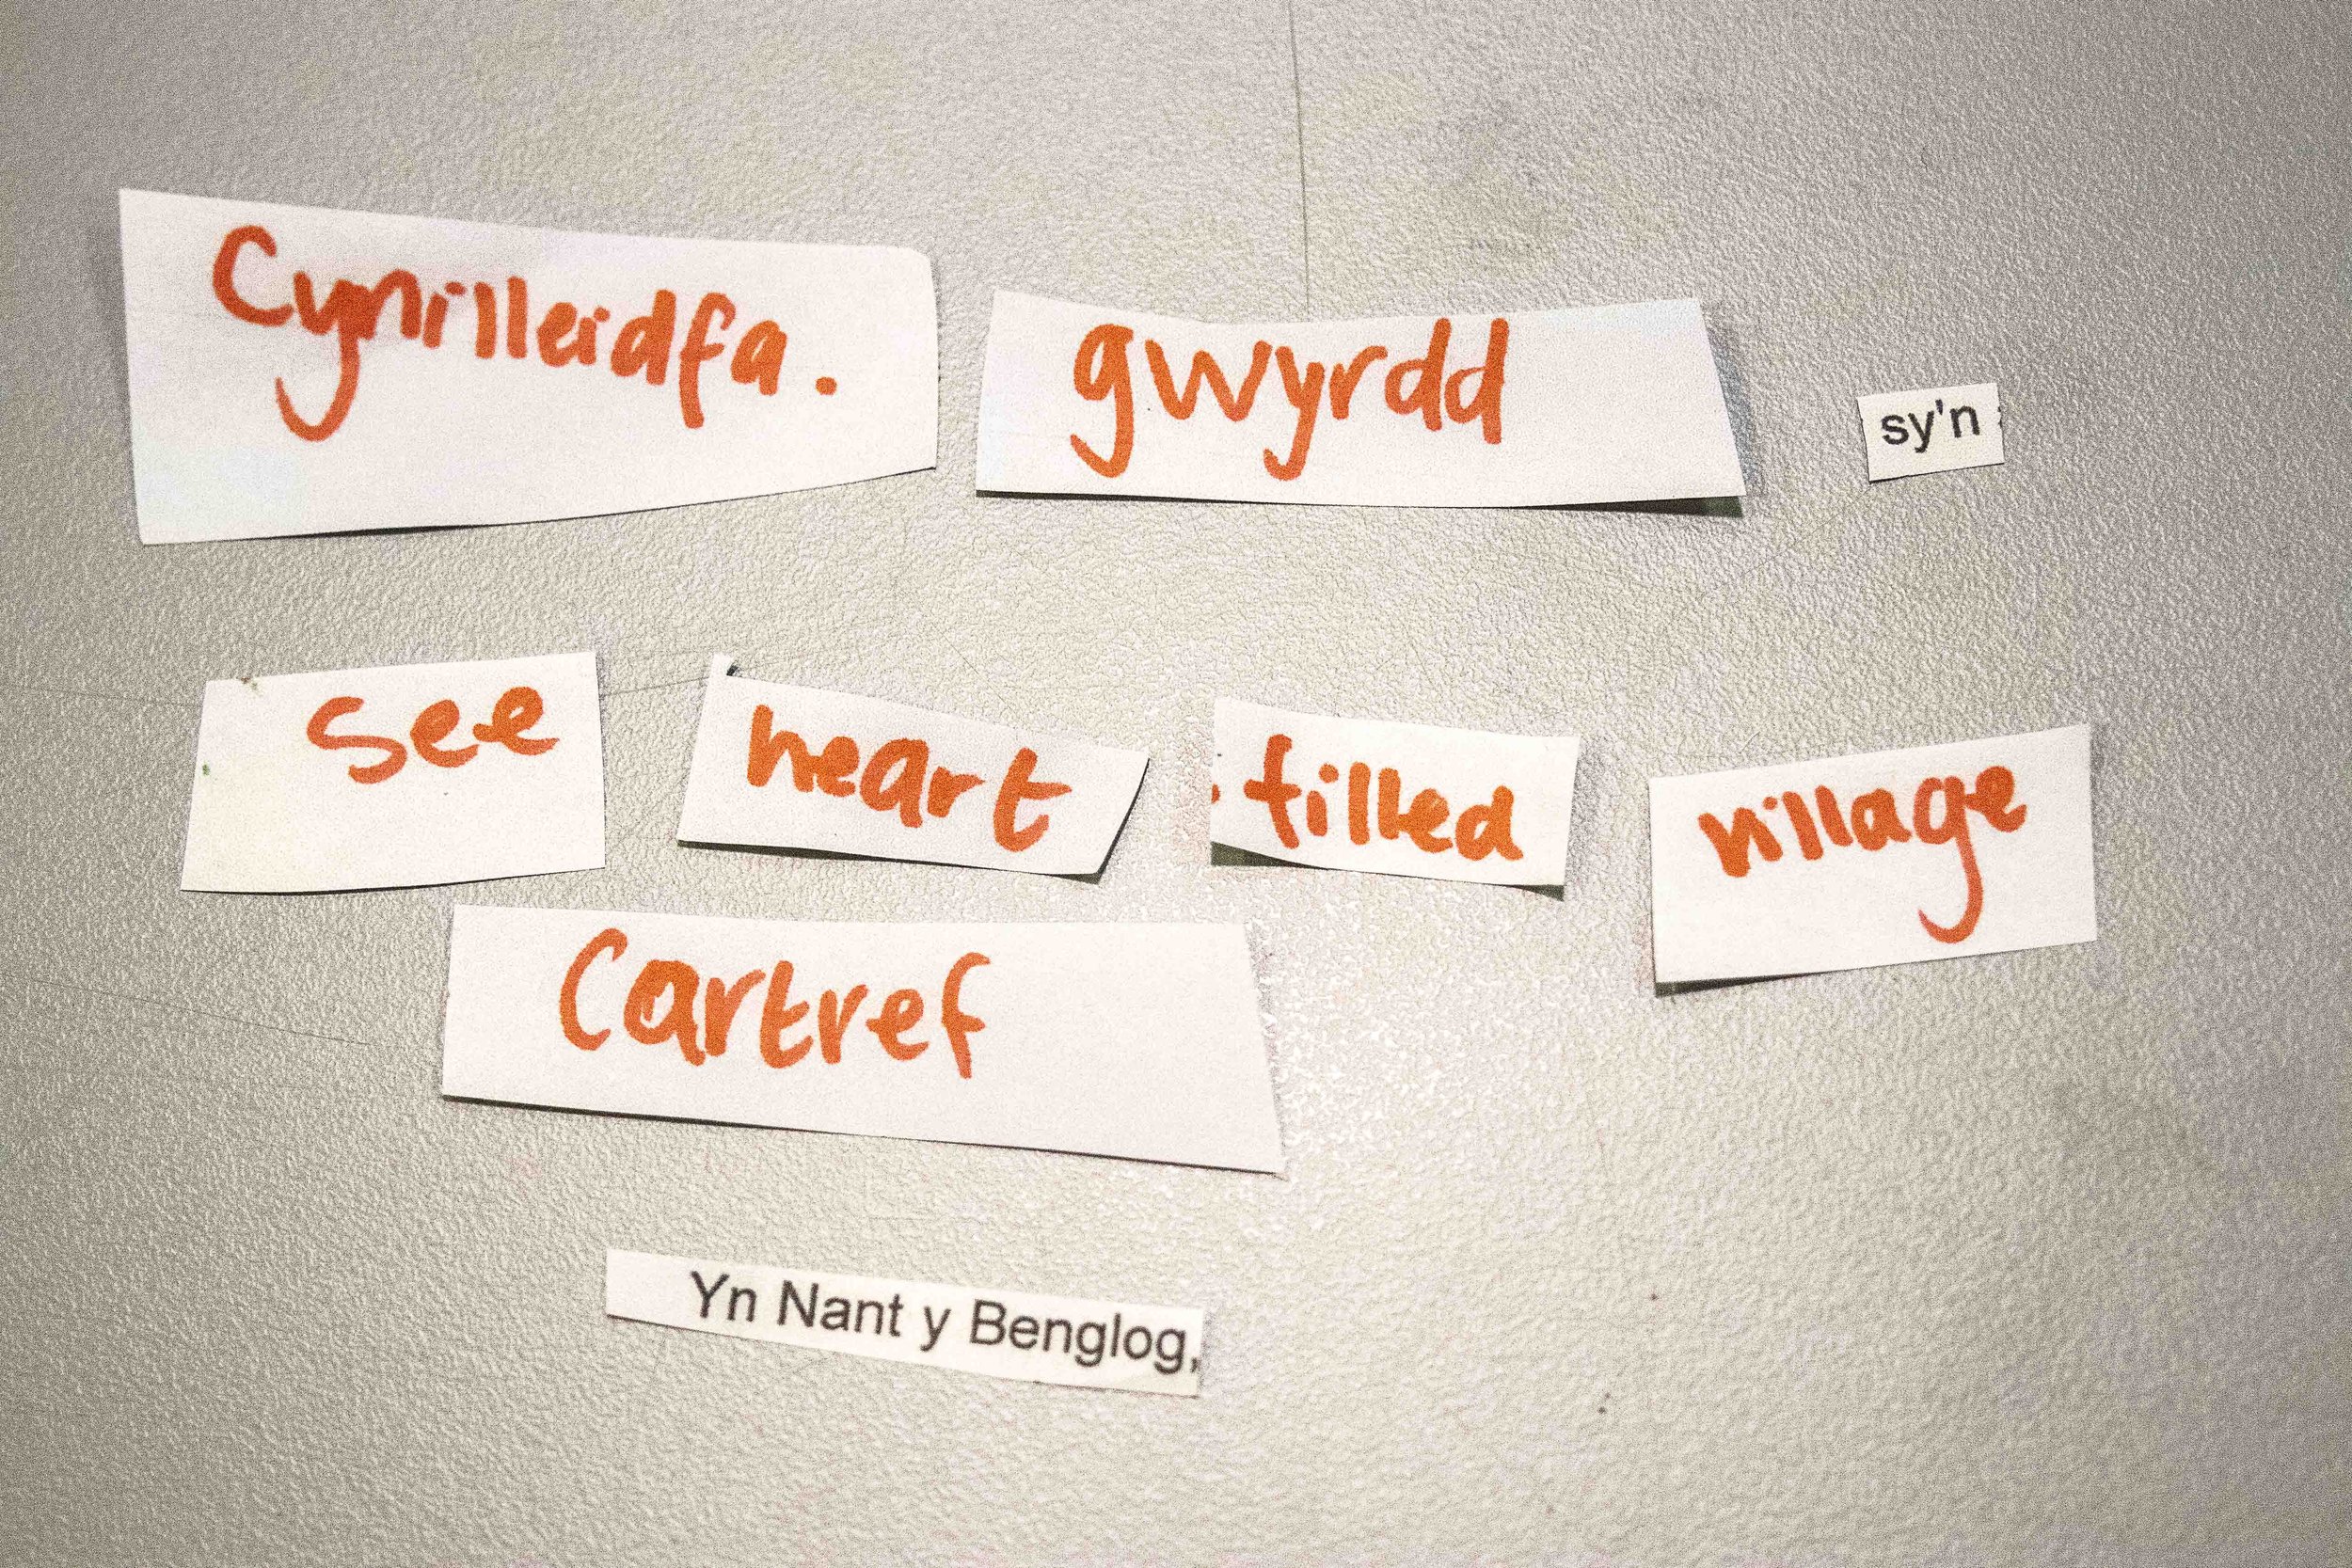 Cynilleidfa. gwyrdd sy'n
see heart filled village
Cartref
Yn Nant y Benglog,